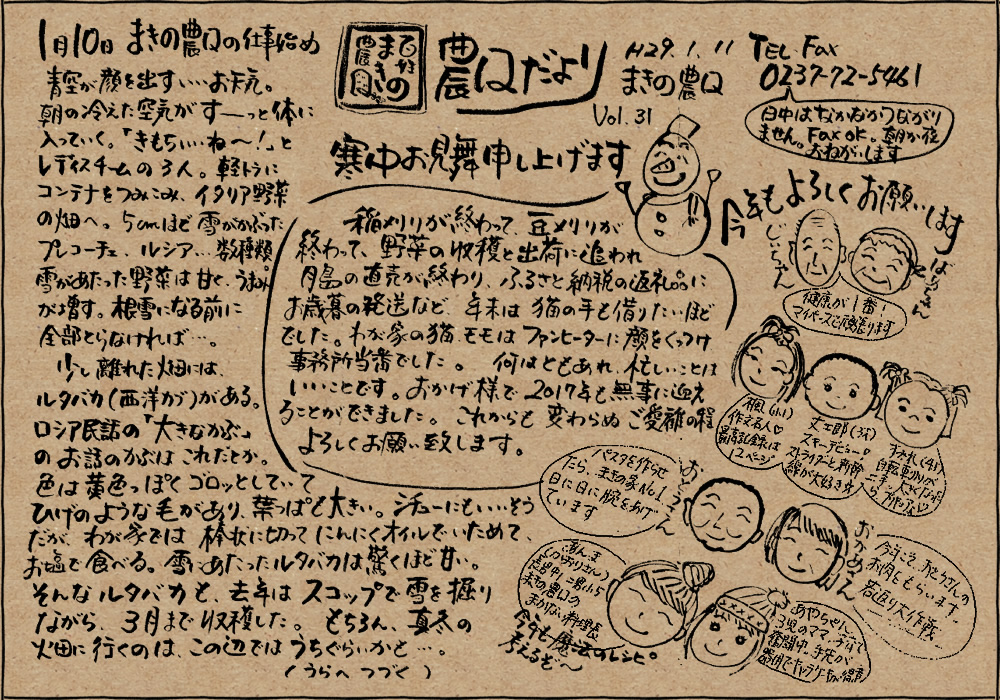 1月10日 まきの農口の仕事始め
青空が顔を出す…お天気。
朝の冷えた空気がすーーっと体に
入っていく。「きもちいいね～!」と
レディスチームの3人。軽トラに
コンテナをつみこみ、イタリア野菜
の畑へ。5cmほど雪がかぶった
プレコーチェ、ルシア…数種類
雪があたった野菜は甘く、うまみ
が増す。根雪になる前に
全部とらなければ…。
少し離れた畑には、
ルタバカ(西洋カブ)がある。
ロシア民話の「大きなかぶ」
のお話のかぶはこれだとか。
色は黄色っぽくゴロッとしていて
ひげのような毛があり、葉っぱも大きい。シチューにもいいそう
だが、わが家では棒状に切ってにんにくオイルでいためて、
お塩で食べる。雪にあたったルタバカは驚くほど甘い。
そんなルタバカも、去年はスコップで雪を掘り
ながら、3月まで収穫した。もちろん、真冬の
畑に行くのは、この辺ではうちぐらいかと…。
(うらへ つづく)
まきの
農口
農口だより
H29.1.11
まきの農口
Vol.31
TEL・Fax
0237-72-5461
日中はなかなかつながり
ません。Fax OK。朝か夜
おねがいします
寒中お見舞申し上げます
稲刈りが終わって、豆刈りが
終わって、野菜の収穫と出荷に追われ
月島の直売が終わり、ふるさと納税の返礼品に
お歳暮の発送など、年末は猫の手も借りたいほど
でした。わが家の猫、モモはファンヒーターに顔をくっつけ
事務所当番でした。何はともあれ、忙しいことは
いいことです。おかげ様で2017年も無事に迎え
ることができました。これからも変わらぬご愛雅の程
よろしくお願い致します。
今年もよろしくお願いします
じいちゃん
ばあちゃん
健康が1番!
マイペースで頑張ります
楓(小1)
作文名人♡
最高記録は
12ページ
丈士郎(3才)
スキーデビュー
ストライダーと新幹
線が大好き
すみれ(4才)
自転車のりが
おとうさん
パスタを作らせ
たら、まきの家No.1
日に日に腕をあげ
ています
おかあさん
今年こそ、おとうさんの
お肉をもらいます。
若返り大作戦
あんま
(かおりさん)
まきの農口の
まかない料理長
今年も魔法のレシピ。
考えるぞ～
あやちゃん
3児のママ、子育て
奮闘中、手先が
器用でキャラケーキが得意